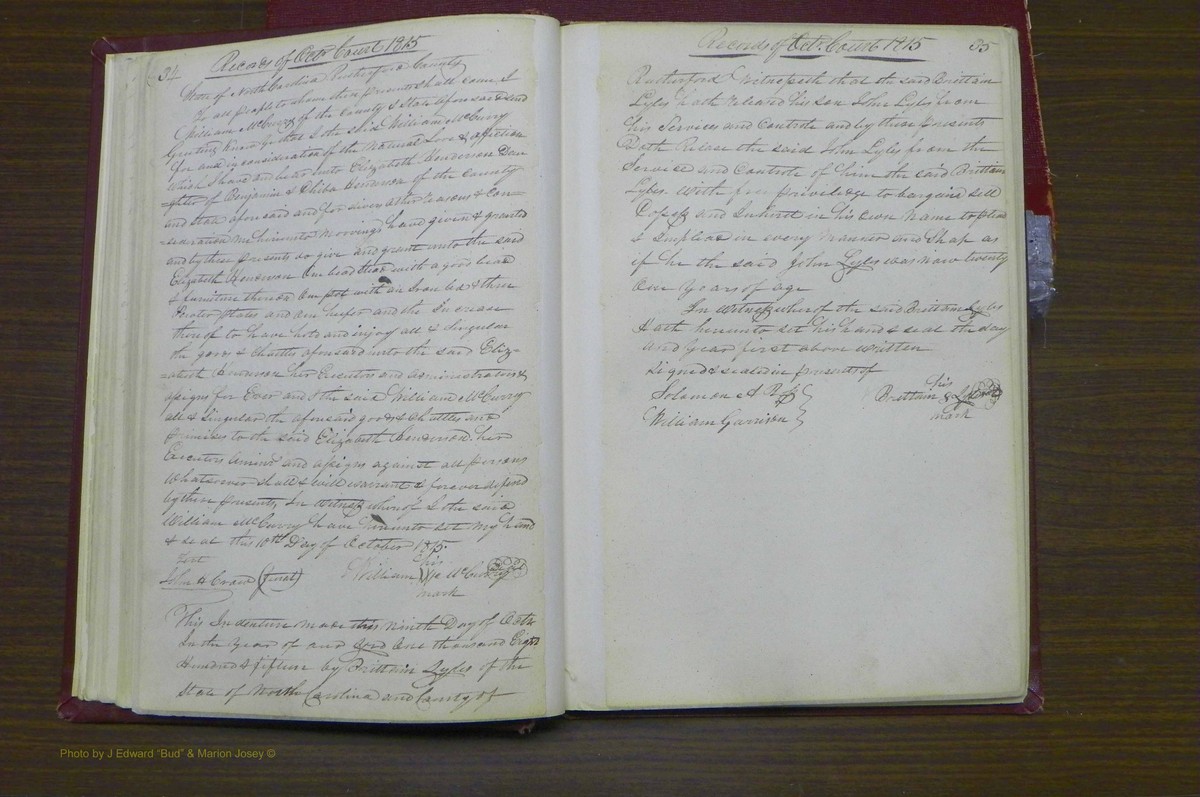 34 Records of Octr Court 1815
State of North Carolina Rutherford County
To all people to whom these presents shall come I
William McCurry of the County & State aforesaid send
Greeting Know ye that I the said William McCurry
for and in consideration of the Natural Love & affection
which I have and bear unto Elizabeth Henderson Dau
=ghter of Benjamin & Henderson of the County
and state aforesaid and for divers other reasons & Con=
=sideration me hereunto mooving have given & granted
and by these presents do give and grant unto the said
Elizabeth Henderson One bead stead with a good bead
& furniture thereon One pot with an Iron led & three
Pewter Plates and one heifer and the Increase
thereof to have hold and injoy all & Singular
the goods & Chattles aforesaid unto the said Eliz=
=abeth Henderson her Executors and administrators &
assigns for Ever and I the said William McCurry
all & singular the aforesaid goods & Chattles and
Primises to the said Elizabeth Henderson her
Executors Admins and assigns against all persons
Whatsoever shall & will warrant & forever defend
by these presents, In Witness whereof I the said
William McCurry have hereunto set my hand
& seal this 10th Day of October 1815.
Test his
John H Crow (Jurat) William McCurry
mark
This Indenture made this Ninth Day of Octr
In the Year of our Lord One thousand Eight
Hundred & fifteen by Brittain Lyles of the
State of North Carolina and County of
Records of Oct. Court 1815 35
Rutherford Witnesseth that the said Brittain
Lyles hath released his son John Lyles from
his Services and Controle and by these Presents
Doth Release the said John Lyles from the
Service and Controle of him the said Brittain
Lyles. With free priviledge to bargain sell
and Inherit in his own Name to plead
& Implead in every Manner and Shap as
if he the said John Lyles was now twenty
One Years of age
In Witness wher of the said Brittain Lyles
Hath hereunto set his hand & seal the day
and year first above written
Signed & sealed in presents of
his
Solomon Brittain Lyles
William Garrison mark
Photo by J Edward "Bud" & Marion Josey ©